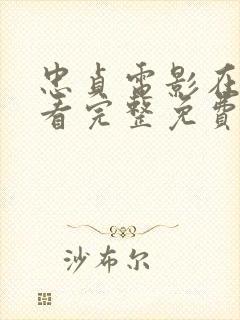 忠贞电影在
看完整免费
沙布尔